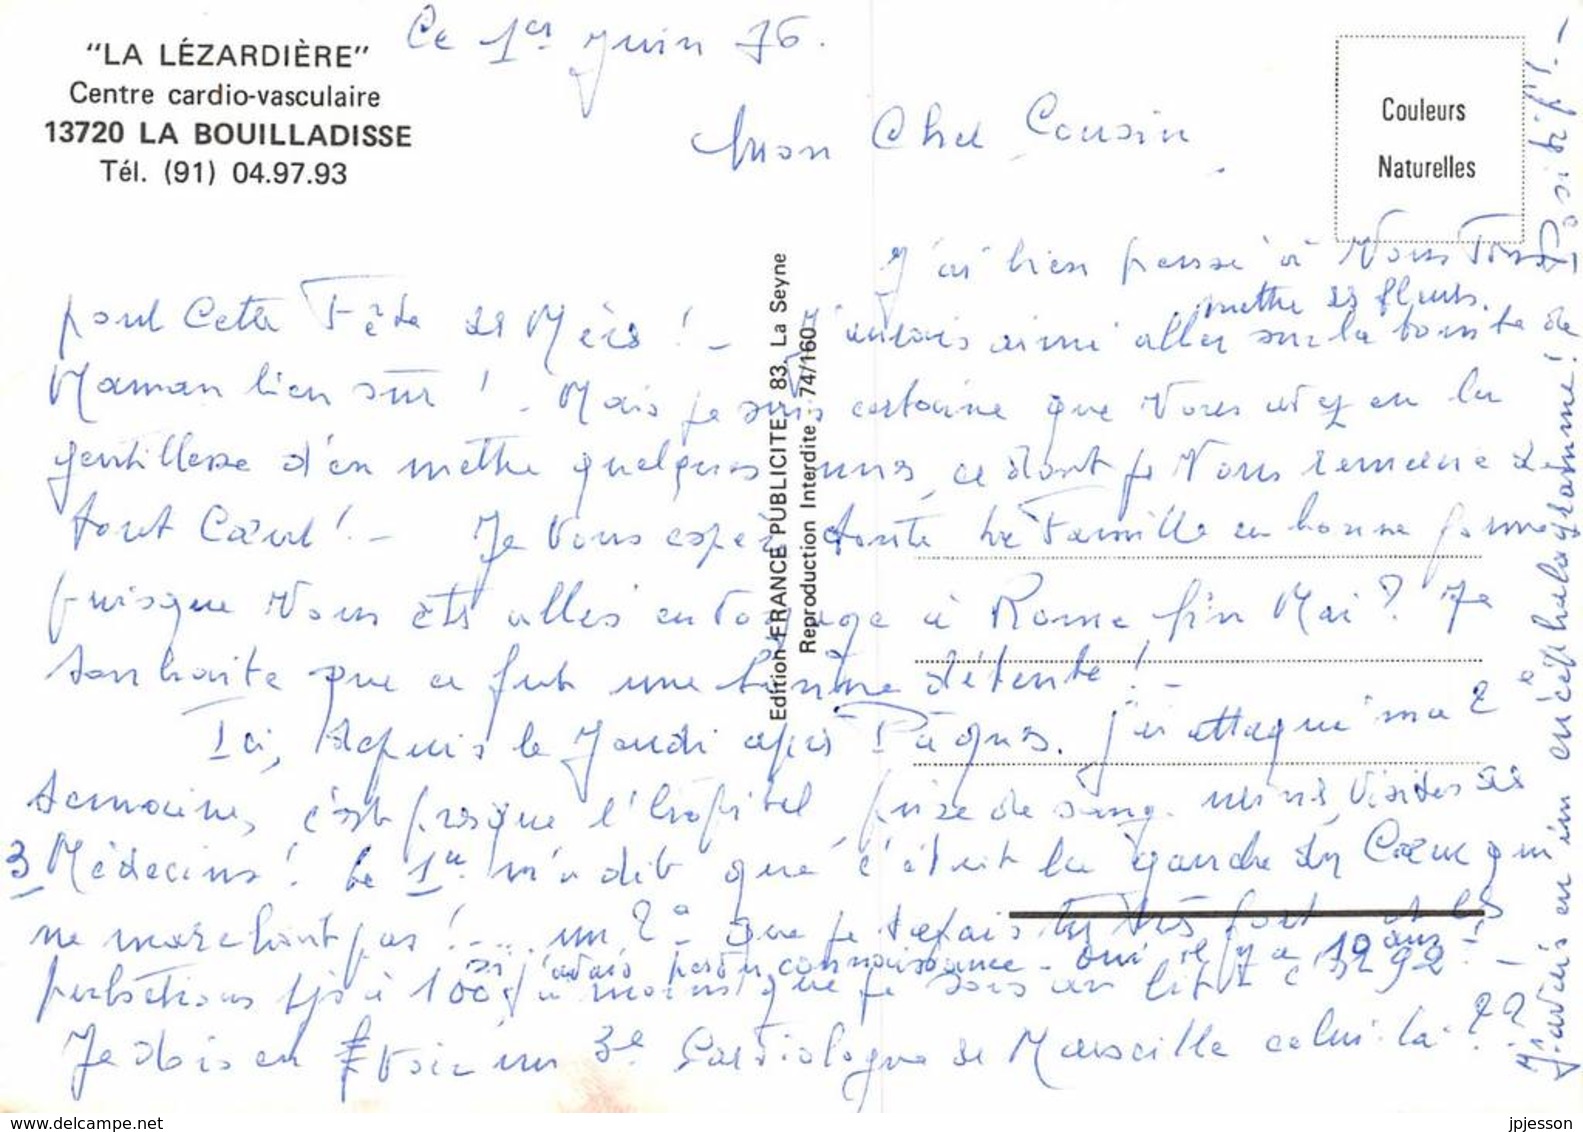 "LA LÉZARDIÈRE"
Centre cardio-vasculaire
13720 LA BOUILLADISSE
Tél. (91) 04.97.93
Ce 1er Juin 76.
Mon Cher Cousin,
Couleurs
Naturelles
J'ai bien pensé à Vous Tous
pour Cette Fête des Mères ! - J'aurais aimé aller sur la tombe de
mettre des fleurs.
Maman bien sûr ! - Mais je suis certaine que Vous avez eu la
gentillesse d'en mettre quelques unes, ce dont je Vous remercie de
tout Cœur ! - Je Vous espère toute la Famille en bonne forme
puisque Vous êtes allés en Voyage à Rome fin Mai ? Je
souhaite que ce fut une bonne détente ! -
Ici, depuis le Jeudi après Pâques. j'ai attaqué ma 2e
semaine, c'est presque l'hôpital, prise de sang. Visites des
3 Médecins ! Le 1er m'a dit que c'était la gauche du Cœur qui
ne marchait pas ! - ... un 2e - que je tapais très fort et les
si j'avais perdu connaissance - oui il y a 10 ans !
pulsations tjs à 100 à moins que je sois au lit 92 -
Je dois en voir un 3e Cardiologue de Marseille celui-là ??
J'avais eu un encéphalogramme ! Positif ! -
Edition FRANCE PUBLICITE 83. La Seyne
Reproduction Interdite : 74/160
www.delcampe.net
jpjesson